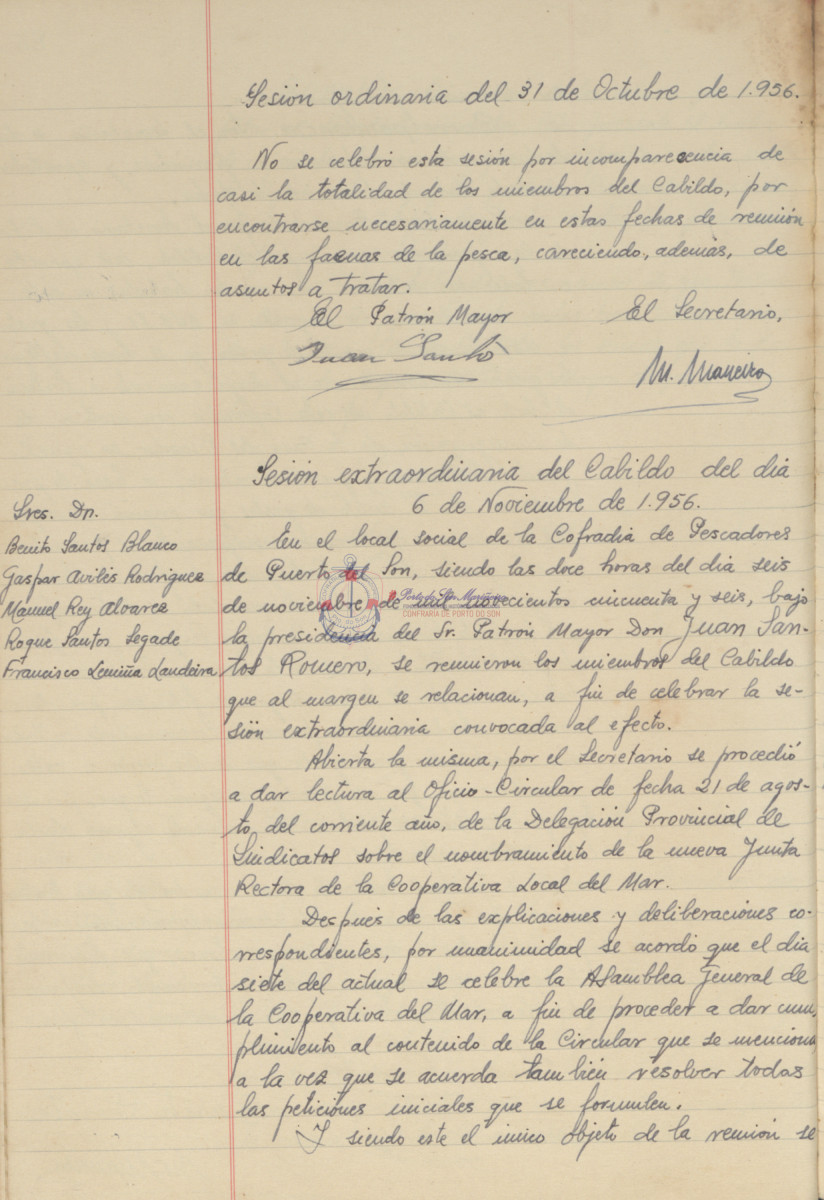 Sesión ordinaria del 31 de Octubre de 1.956.
No se celebró esta sesión por incomparecencia de
casi la totalidad de los miembros del Cabildo, por
encontrarse necesariamente en estas fechas de reunión
en las faenas de la pesca, careciendo, además, de
asuntos a tratar.
El Patrón Mayor El Secretario,
Juan Santos
M. Maneiro
Sesión extraordinaria del Cabildo del dia
6 de Noviembre de 1.956.
Sres. Dn.
Benito Santos Blanco
Gaspar Avilés Rodriguez
Manuel Rey Alvarez
Roque Santos Segade
Francisco Lemiña Landeira
En el local social de la Cofradia de Pescadores
de Puerto del Son, siendo las doce horas del dia seis
de noviembre de mil novecientos cincuenta y seis, bajo
la presidencia del Sr. Patrón Mayor Don Juan San-
tos Romero, se reunieron los miembros del Cabildo
que al margen se relacionan, a fin de celebrar la se-
sión extraordinaria convocada al efecto.
Abierta la misma, por el Secretario se procedió
a dar lectura al Oficio-Circular de fecha 21 de agos-
to, del corriente año, de la Delegación Provincial de
Sindicatos sobre el nombramiento de la nueva Junta
Rectora de la Cooperativa Local del Mar.
Después de las explicaciones y deliberaciones co-
rrespondientes, por unanimidad se acordó que el dia
siete del actual se celebre la Asamblea General de
la Cooperativa del Mar, a fin de proceder a dar cum-
plimiento al contenido de la Circular que se menciona
a la vez que se acuerda también resolver todas
las peticiones iniciales que se formulen.
Y siendo este el único objeto de la reunión se
Porto do Son Mariñeiro
CONFRARÍA DE PORTO DO SON